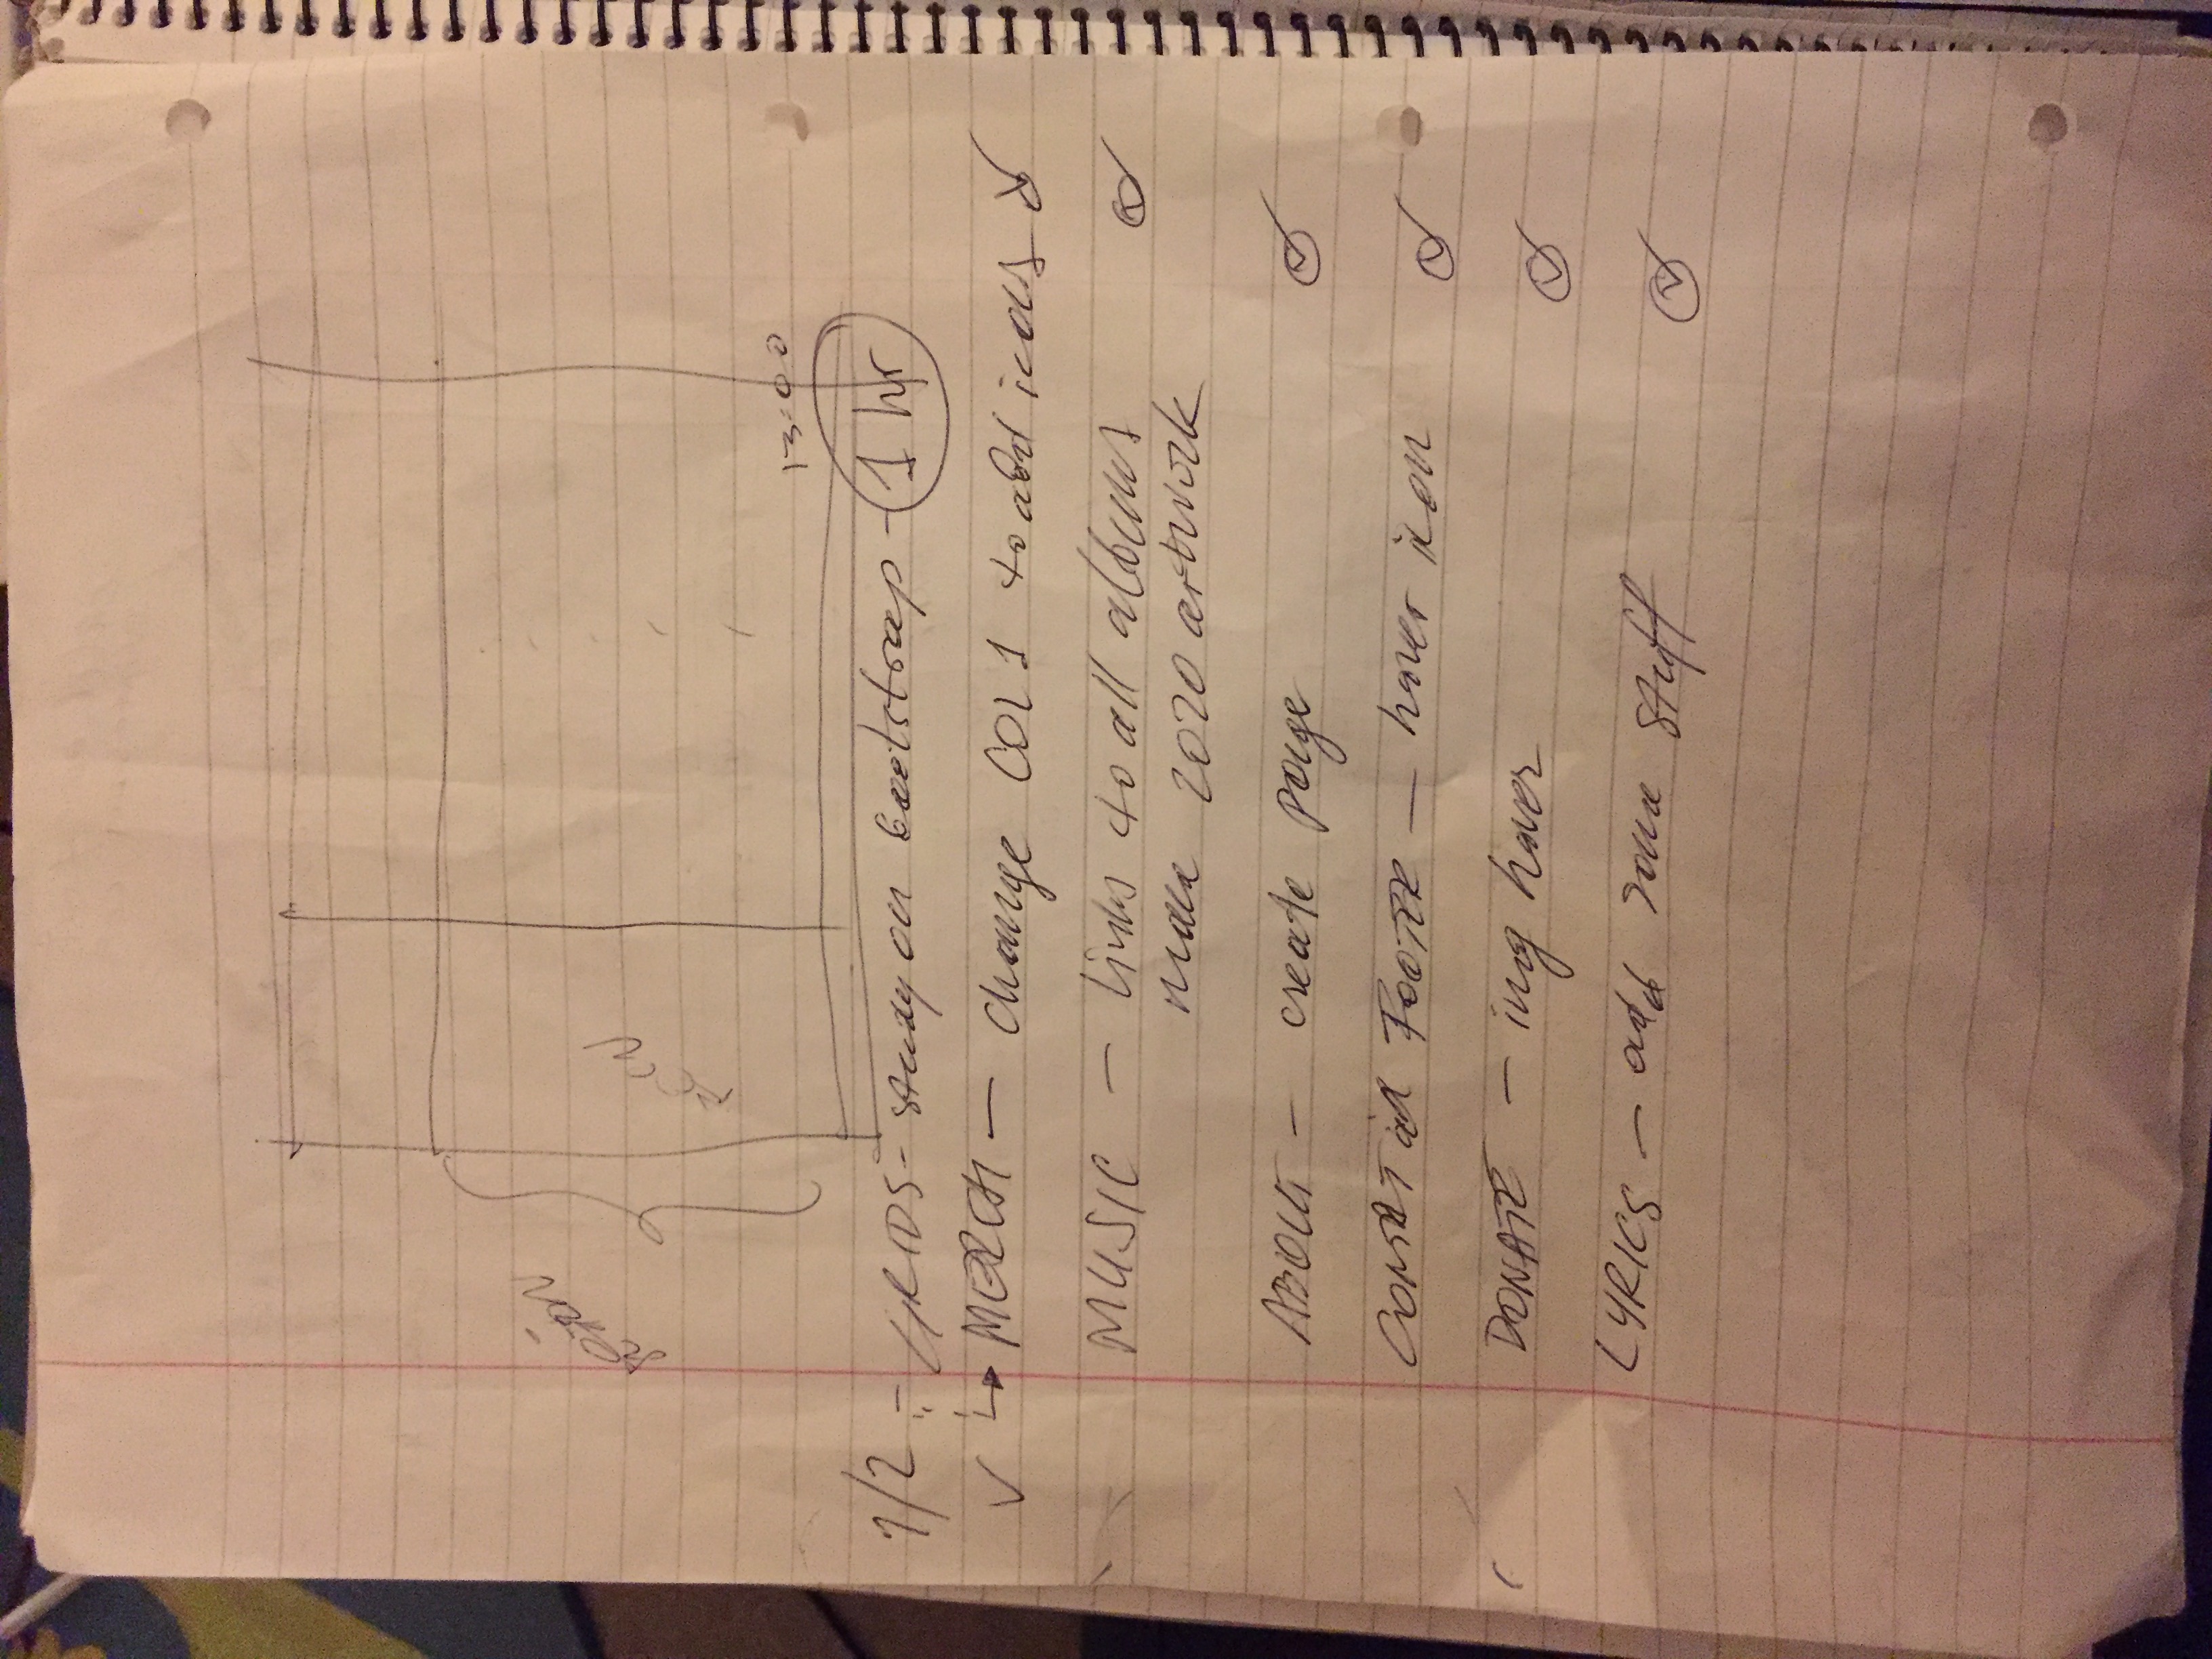 section
ROW
13:00
1/2 - GRIDS - study on bootstrap - 1 hr
MERCH - change COL 1 to add icons
MUSIC - links to all albums
make 2020 artwork
ABOUT - create page
FOOTER - hover icon
DONATE - img hover
LYRICS - add some stuff